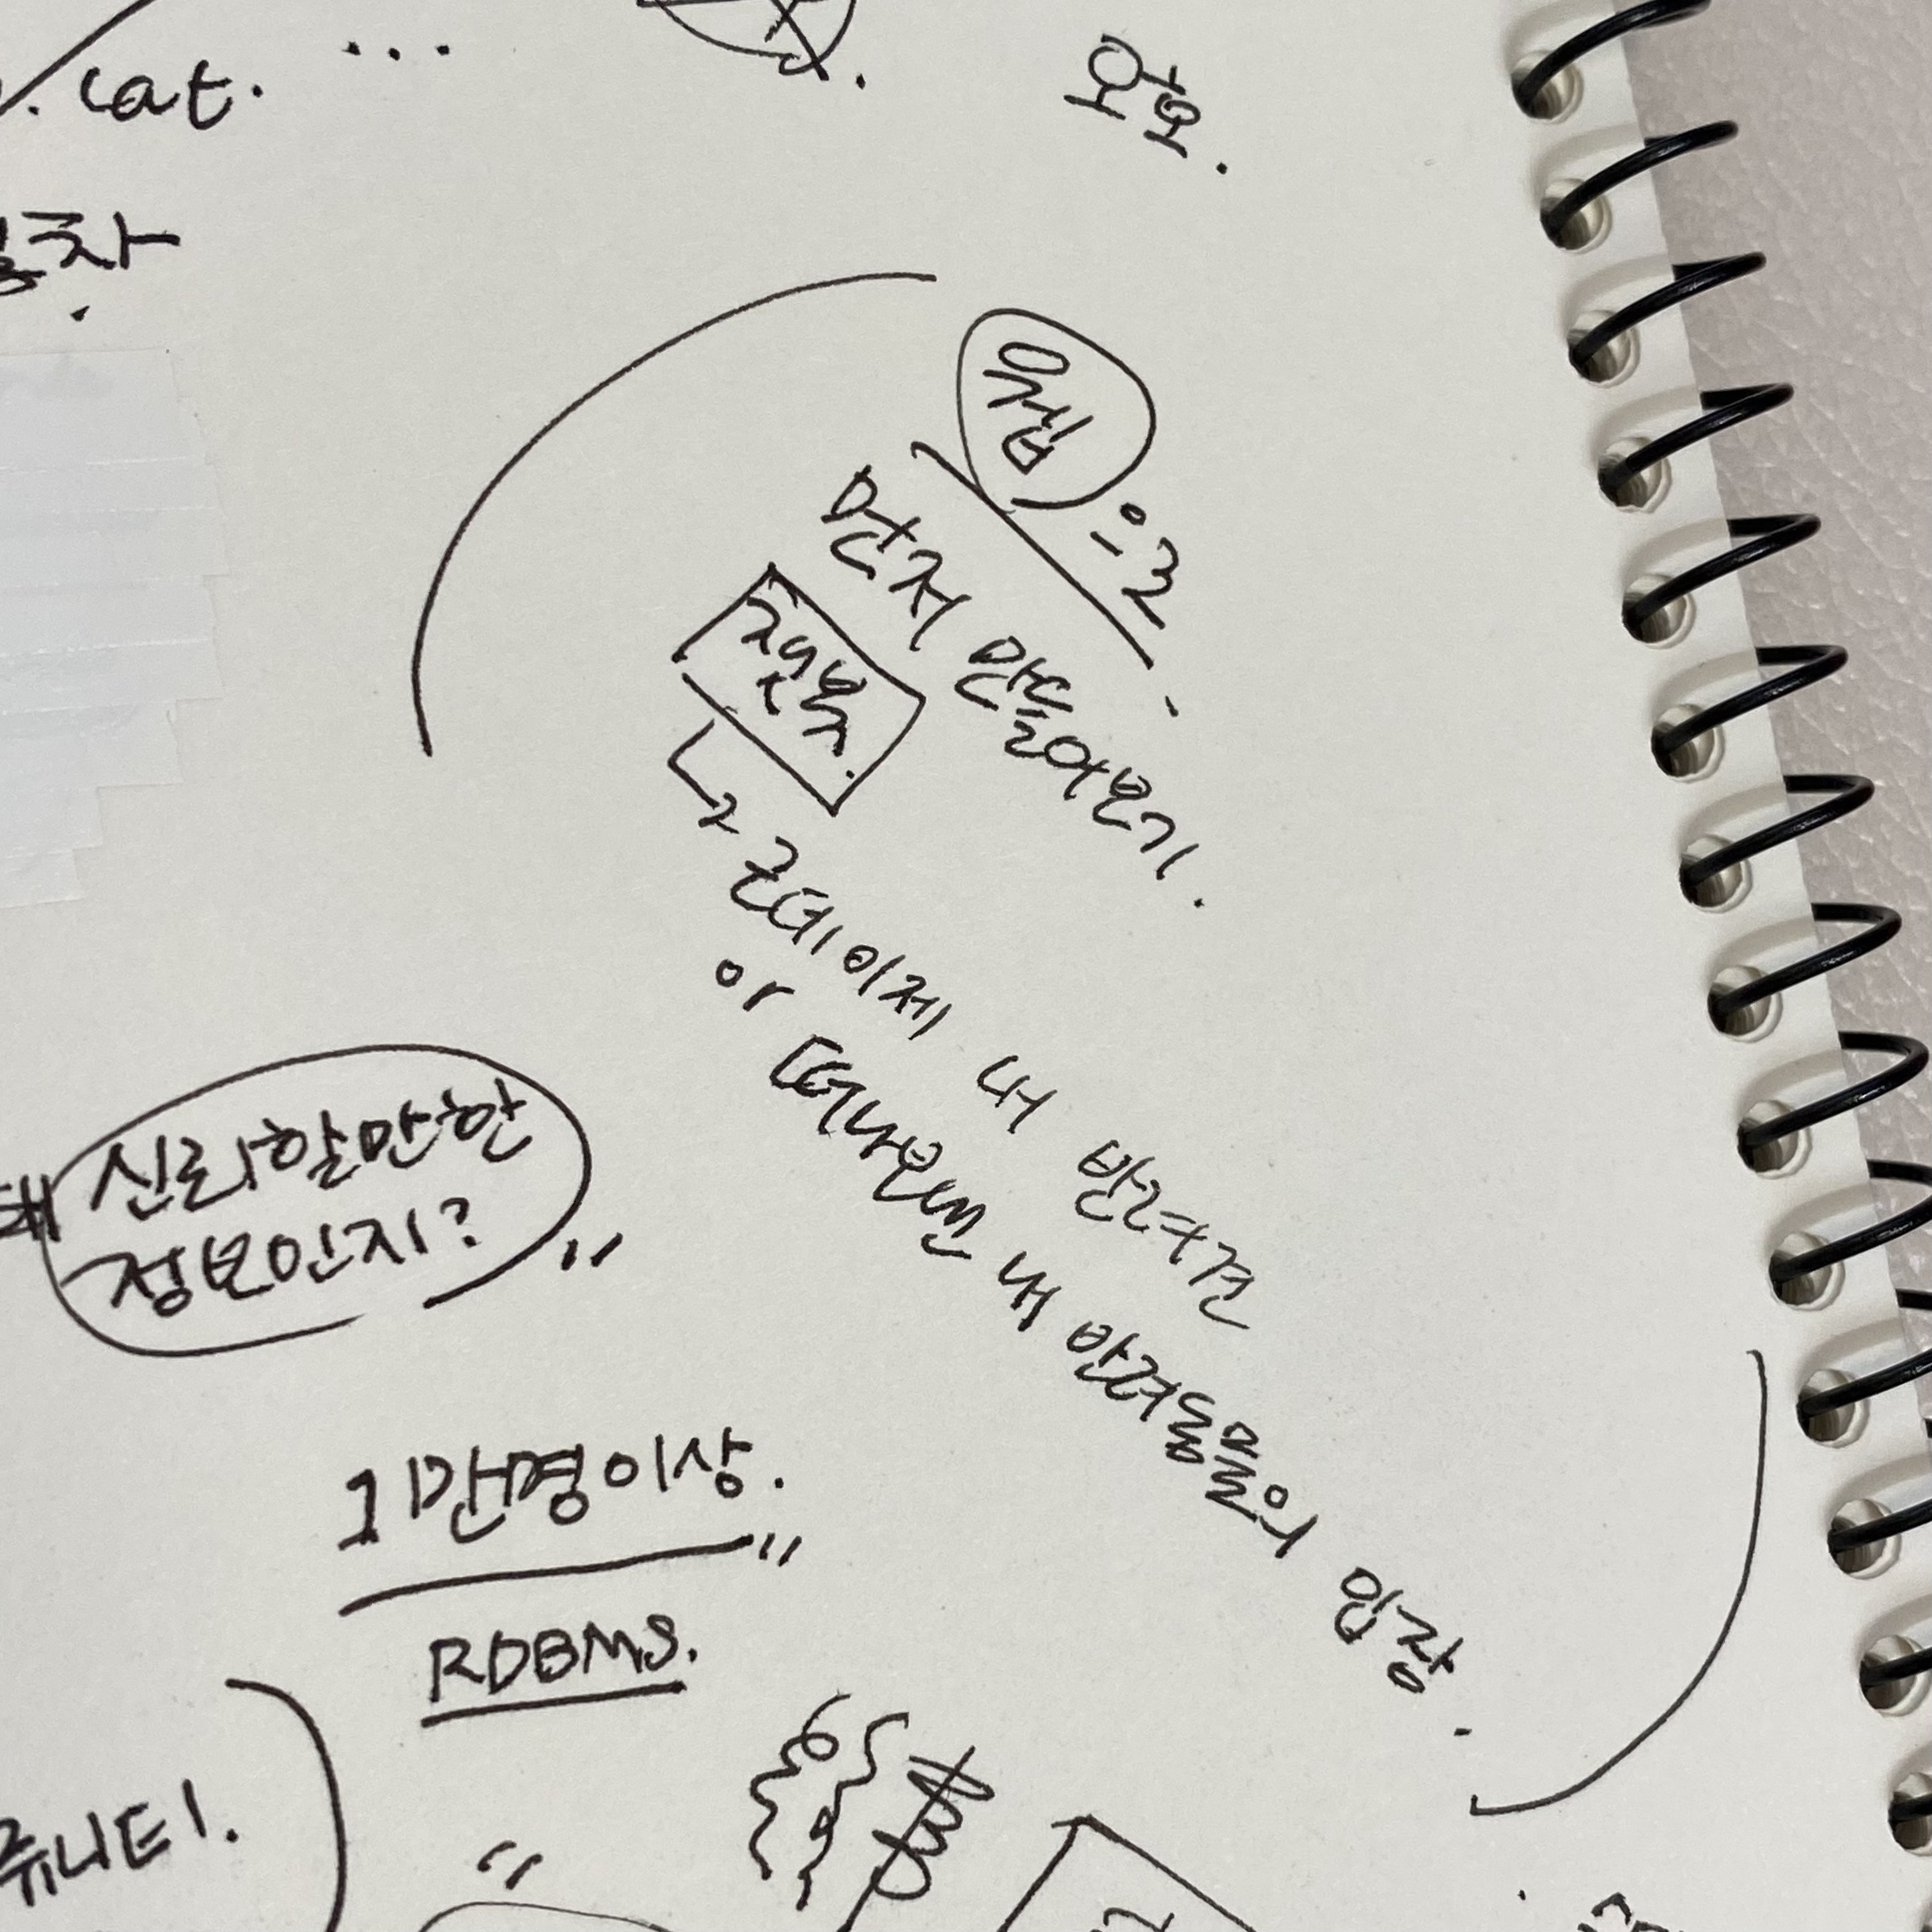 cat. ...
오호.
웹으로
먼저 만들어보기.
챗봇.
근데 이제 내 반려견
or 떠나보낸 내 반려동물의 입장.
신뢰할만한
정보인지?
1만명이상.
RDBMS.
뮤니티.